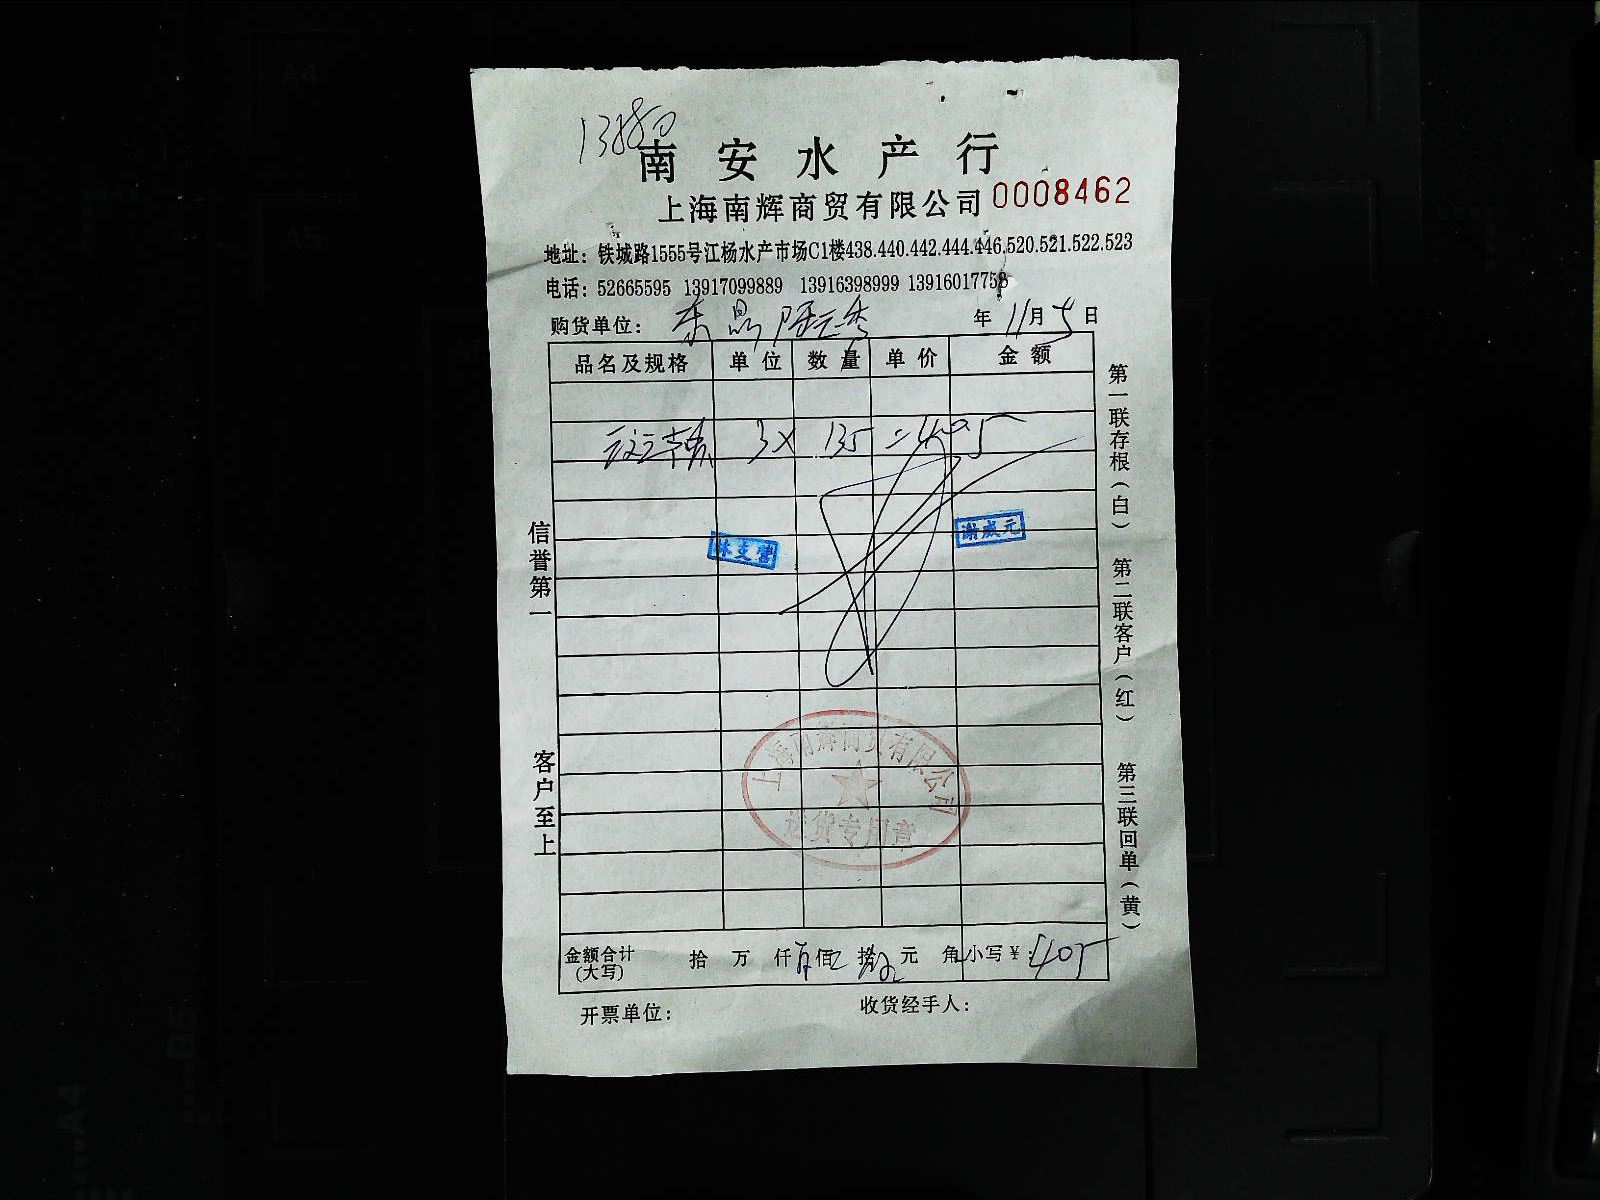 13880
南安水产行
上海南辉商贸有限公司 0008462
地址：铁城路1555号江杨水产市场C1楼438.440.442.444.446.520.521.522.523
电话：52665595 13917099889 13916398999 13916017758
购货单位： 东晶 年 11月5日
品名及规格 单位 数量 单价 金额
3X 135 =405
谢成元
林支营
信誉第一
客户至上
第一联存根（白）
第二联客户（红）
第三联回单（黄）
上海南辉商贸有限公司
送货专用章
金额合计（大写） 拾 万 仟 佰 拾 元 角 小写¥：405
开票单位： 收货经手人：